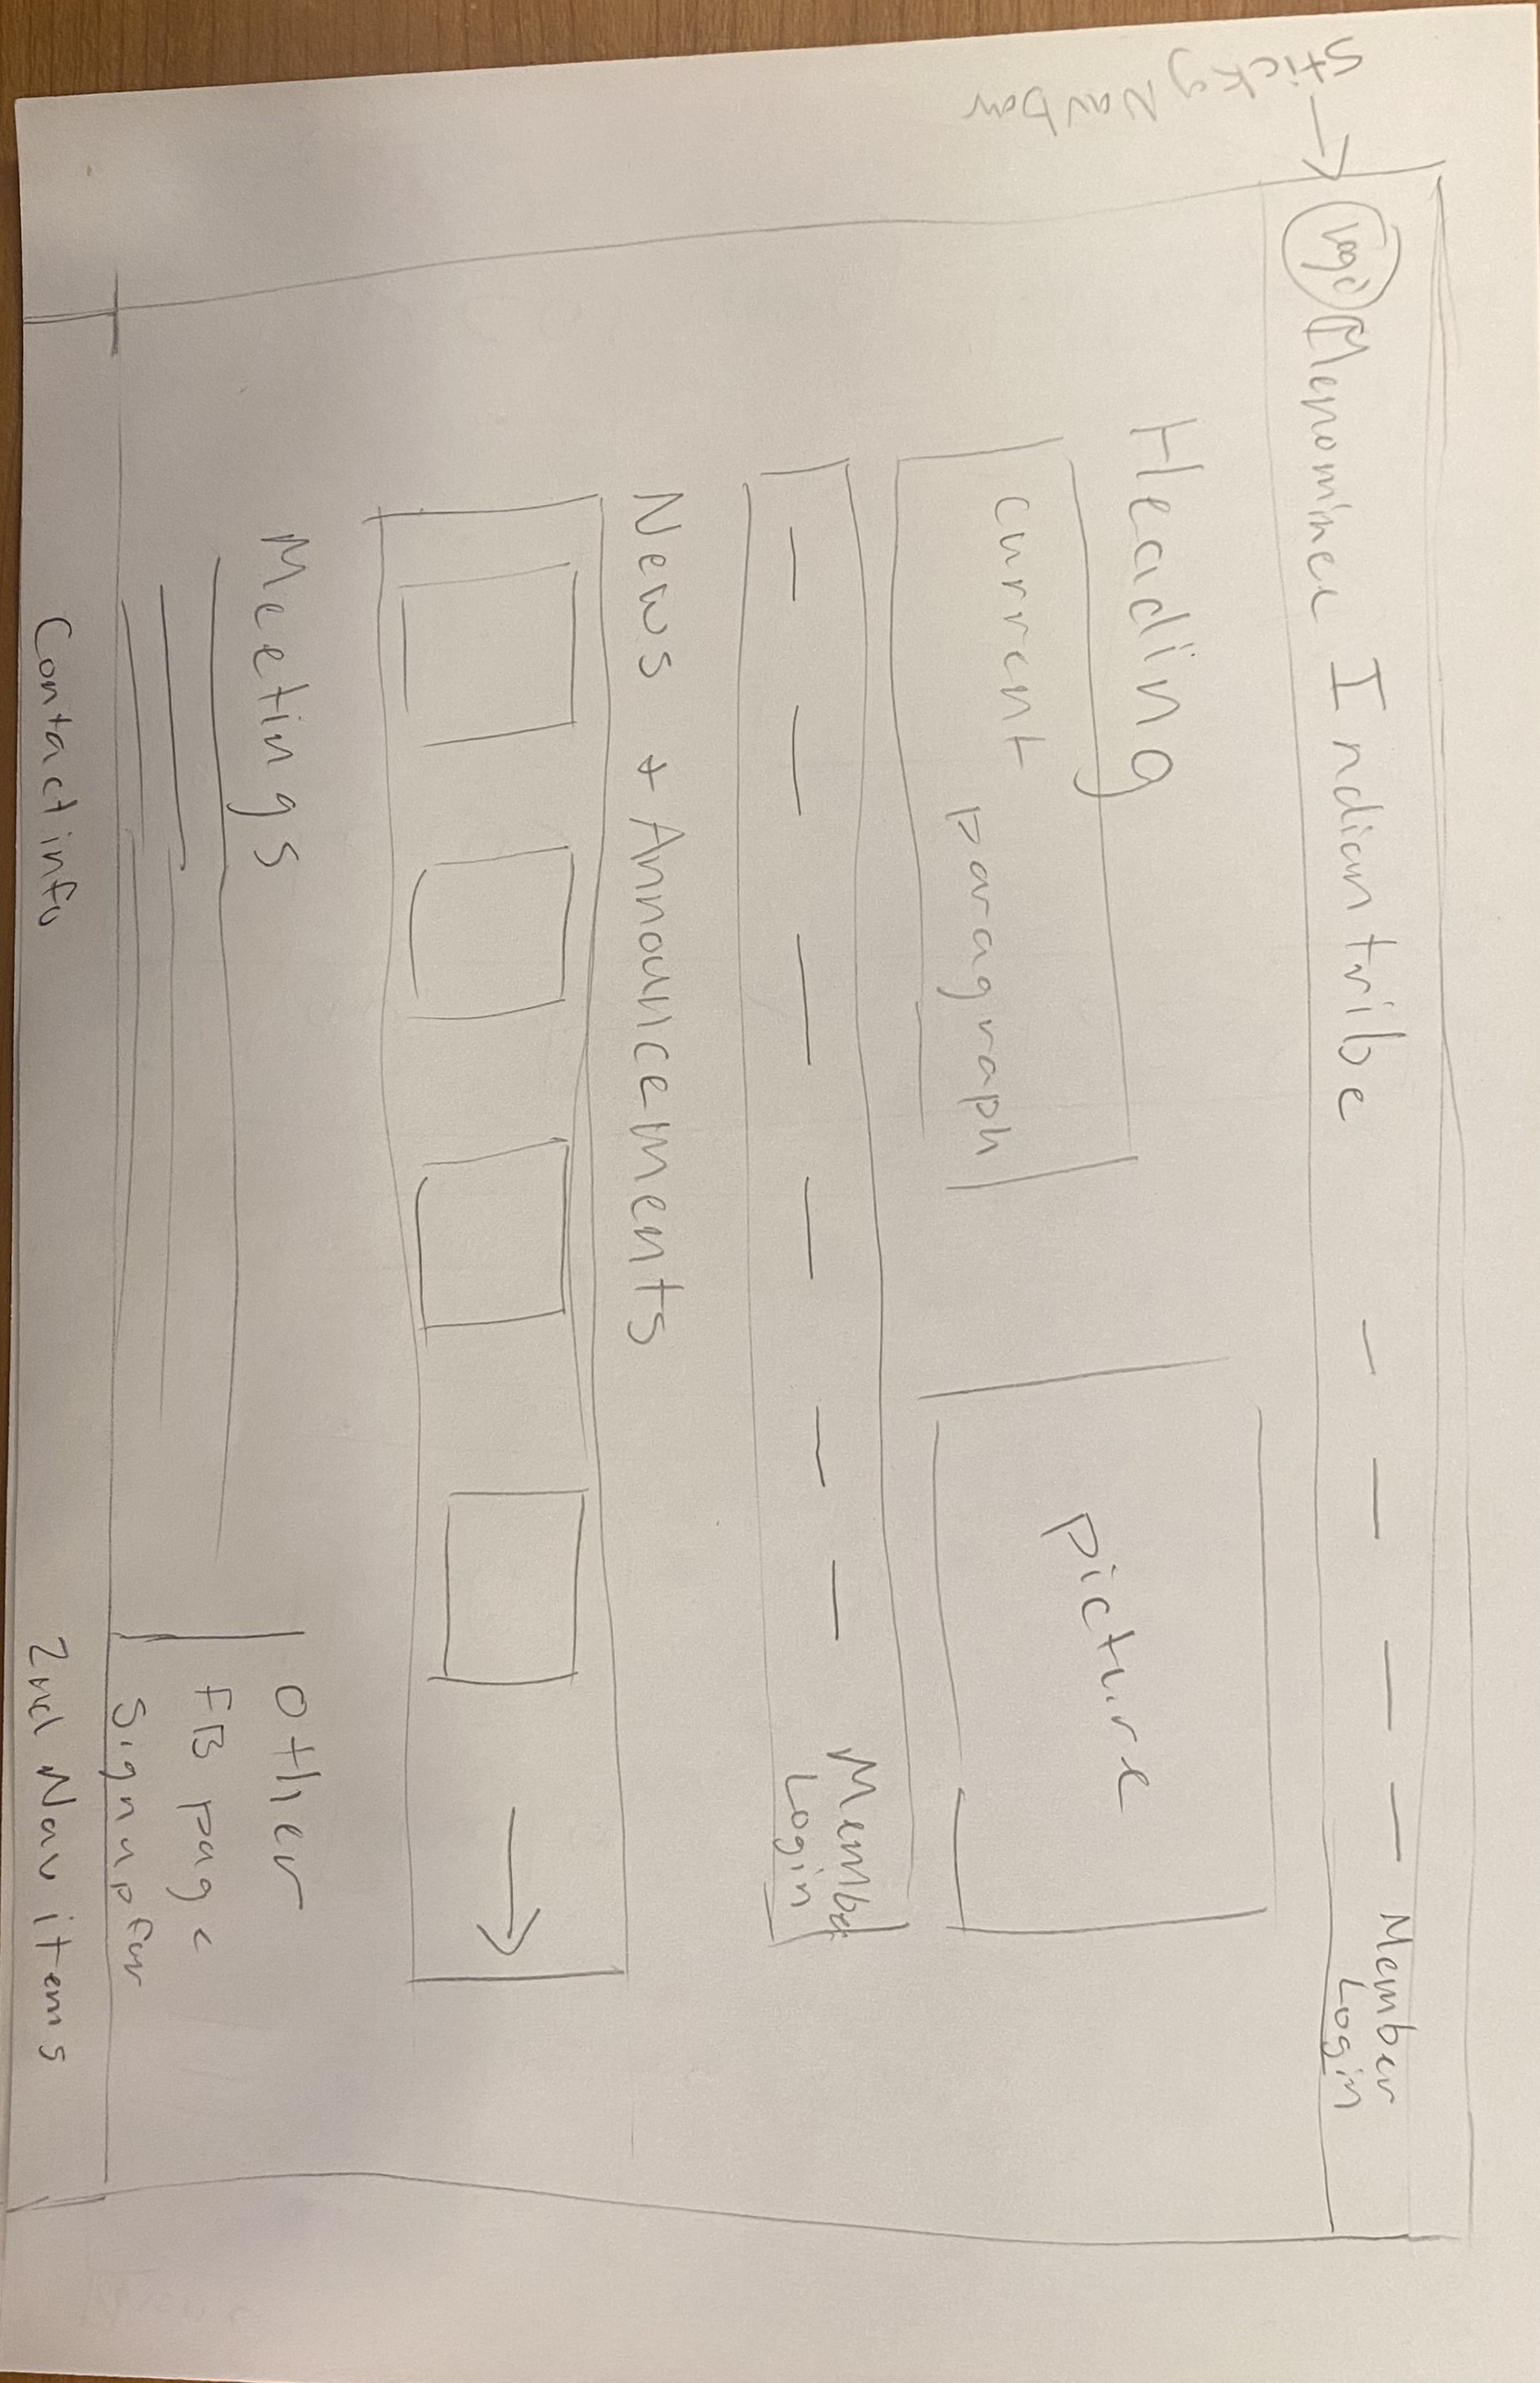 Sticky Navbar
Logo Menominee Indian tribe Member
Login
Heading
current
paragraph
picture
Member
Login
News + Announcements
Meetings
Other
FB page
Sign up for
Contact info
2nd Nav items